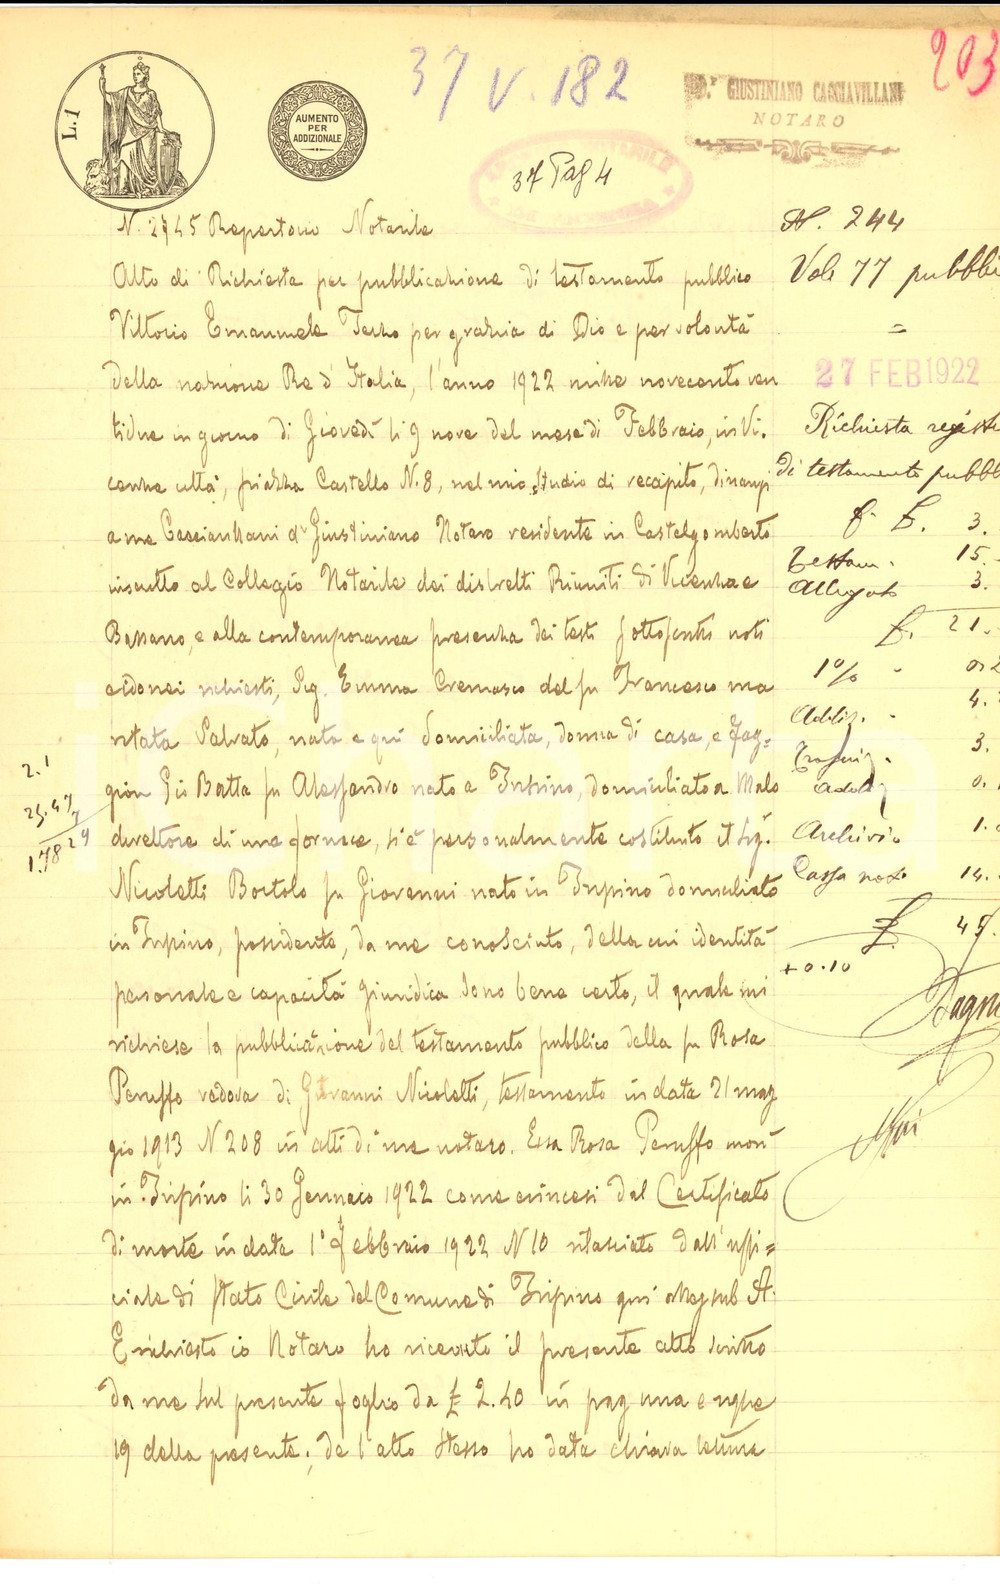 37 V. 182
203
L. 1
AUMENTO
PER
ADDIZIONALE
D.r GIUSTINIANO CACCIAVILLANI
NOTARO
37 Pag 4
N. 2745 Repertorio Notarile
Atto di Richiesta per pubblicazione di testamento pubblico
Vittorio Emanuele Terzo per grazia di Dio e per volontà
della nazione Re d'Italia, l'anno 1922 mille novecento ven
tidue in giorno di Giovedì li 9 nove del mese di Febbraio, in Vi.
cenza città, piazza Castello N. 8, nel mio studio di recapito, dinanzi
a me Cacciavillani dr Giustiniano Notaro residente in Castelgomberto
inscritto al Collegio Notarile dei distretti Riuniti di Vicenza e
Bassano, e alla contemporanea presenza dei testi sottoscritti noti
e idonei richiesti, Sig. Emma Cremasco del fu Francesco ma
ritata Salvato, nata e qui domiciliata, donna di casa, e Fag=
gion Gio Batta fu Alessandro nato a Trissino, domiciliato a Malo
direttore di una fornace, si è personalmente costituito il Sig.
Nicoletti Bortolo fu Giovanni nato in Trissino domiciliato
in Trissino, possidente, da me conosciuto, della cui identità
personale e capacità giuridica sono bene certo, il quale mi
richiese la pubblicazione del testamento pubblico della fu Rosa
Peruffo vedova di Giovanni Nicoletti, testamento in data 21 mag
gio 1913 N 208 in atti di me notaro. Essa Rosa Peruffo morì
in Trissino li 30 Gennaio 1922 come evincesi dal Certificato
di morte in data 1° Febbraio 1922 N 10 rilasciato dall'uffi=
ciale di Stato Civile del Comune di Trissino qui alleg sub A.
E richiesto io Notaro ho ricevuto il presente atto scritto
da me sul presente foglio da £ 2.40 in pag una e righe
19 della presente; de l'atto stesso ho data chiara lettura
N. 244
Vol. 77 pubbli
=
27 FEB 1922
Richiesta regist
di testamento pubbl
£. 3.
Testam. 15.
Allegato 3.
£. 21.
1%
Addiz. 4.
3.
Addiz 0.
Archivio 1.
Cassa not. 14.
£ 47.
+0.10
2.1
25.47
1.78 29